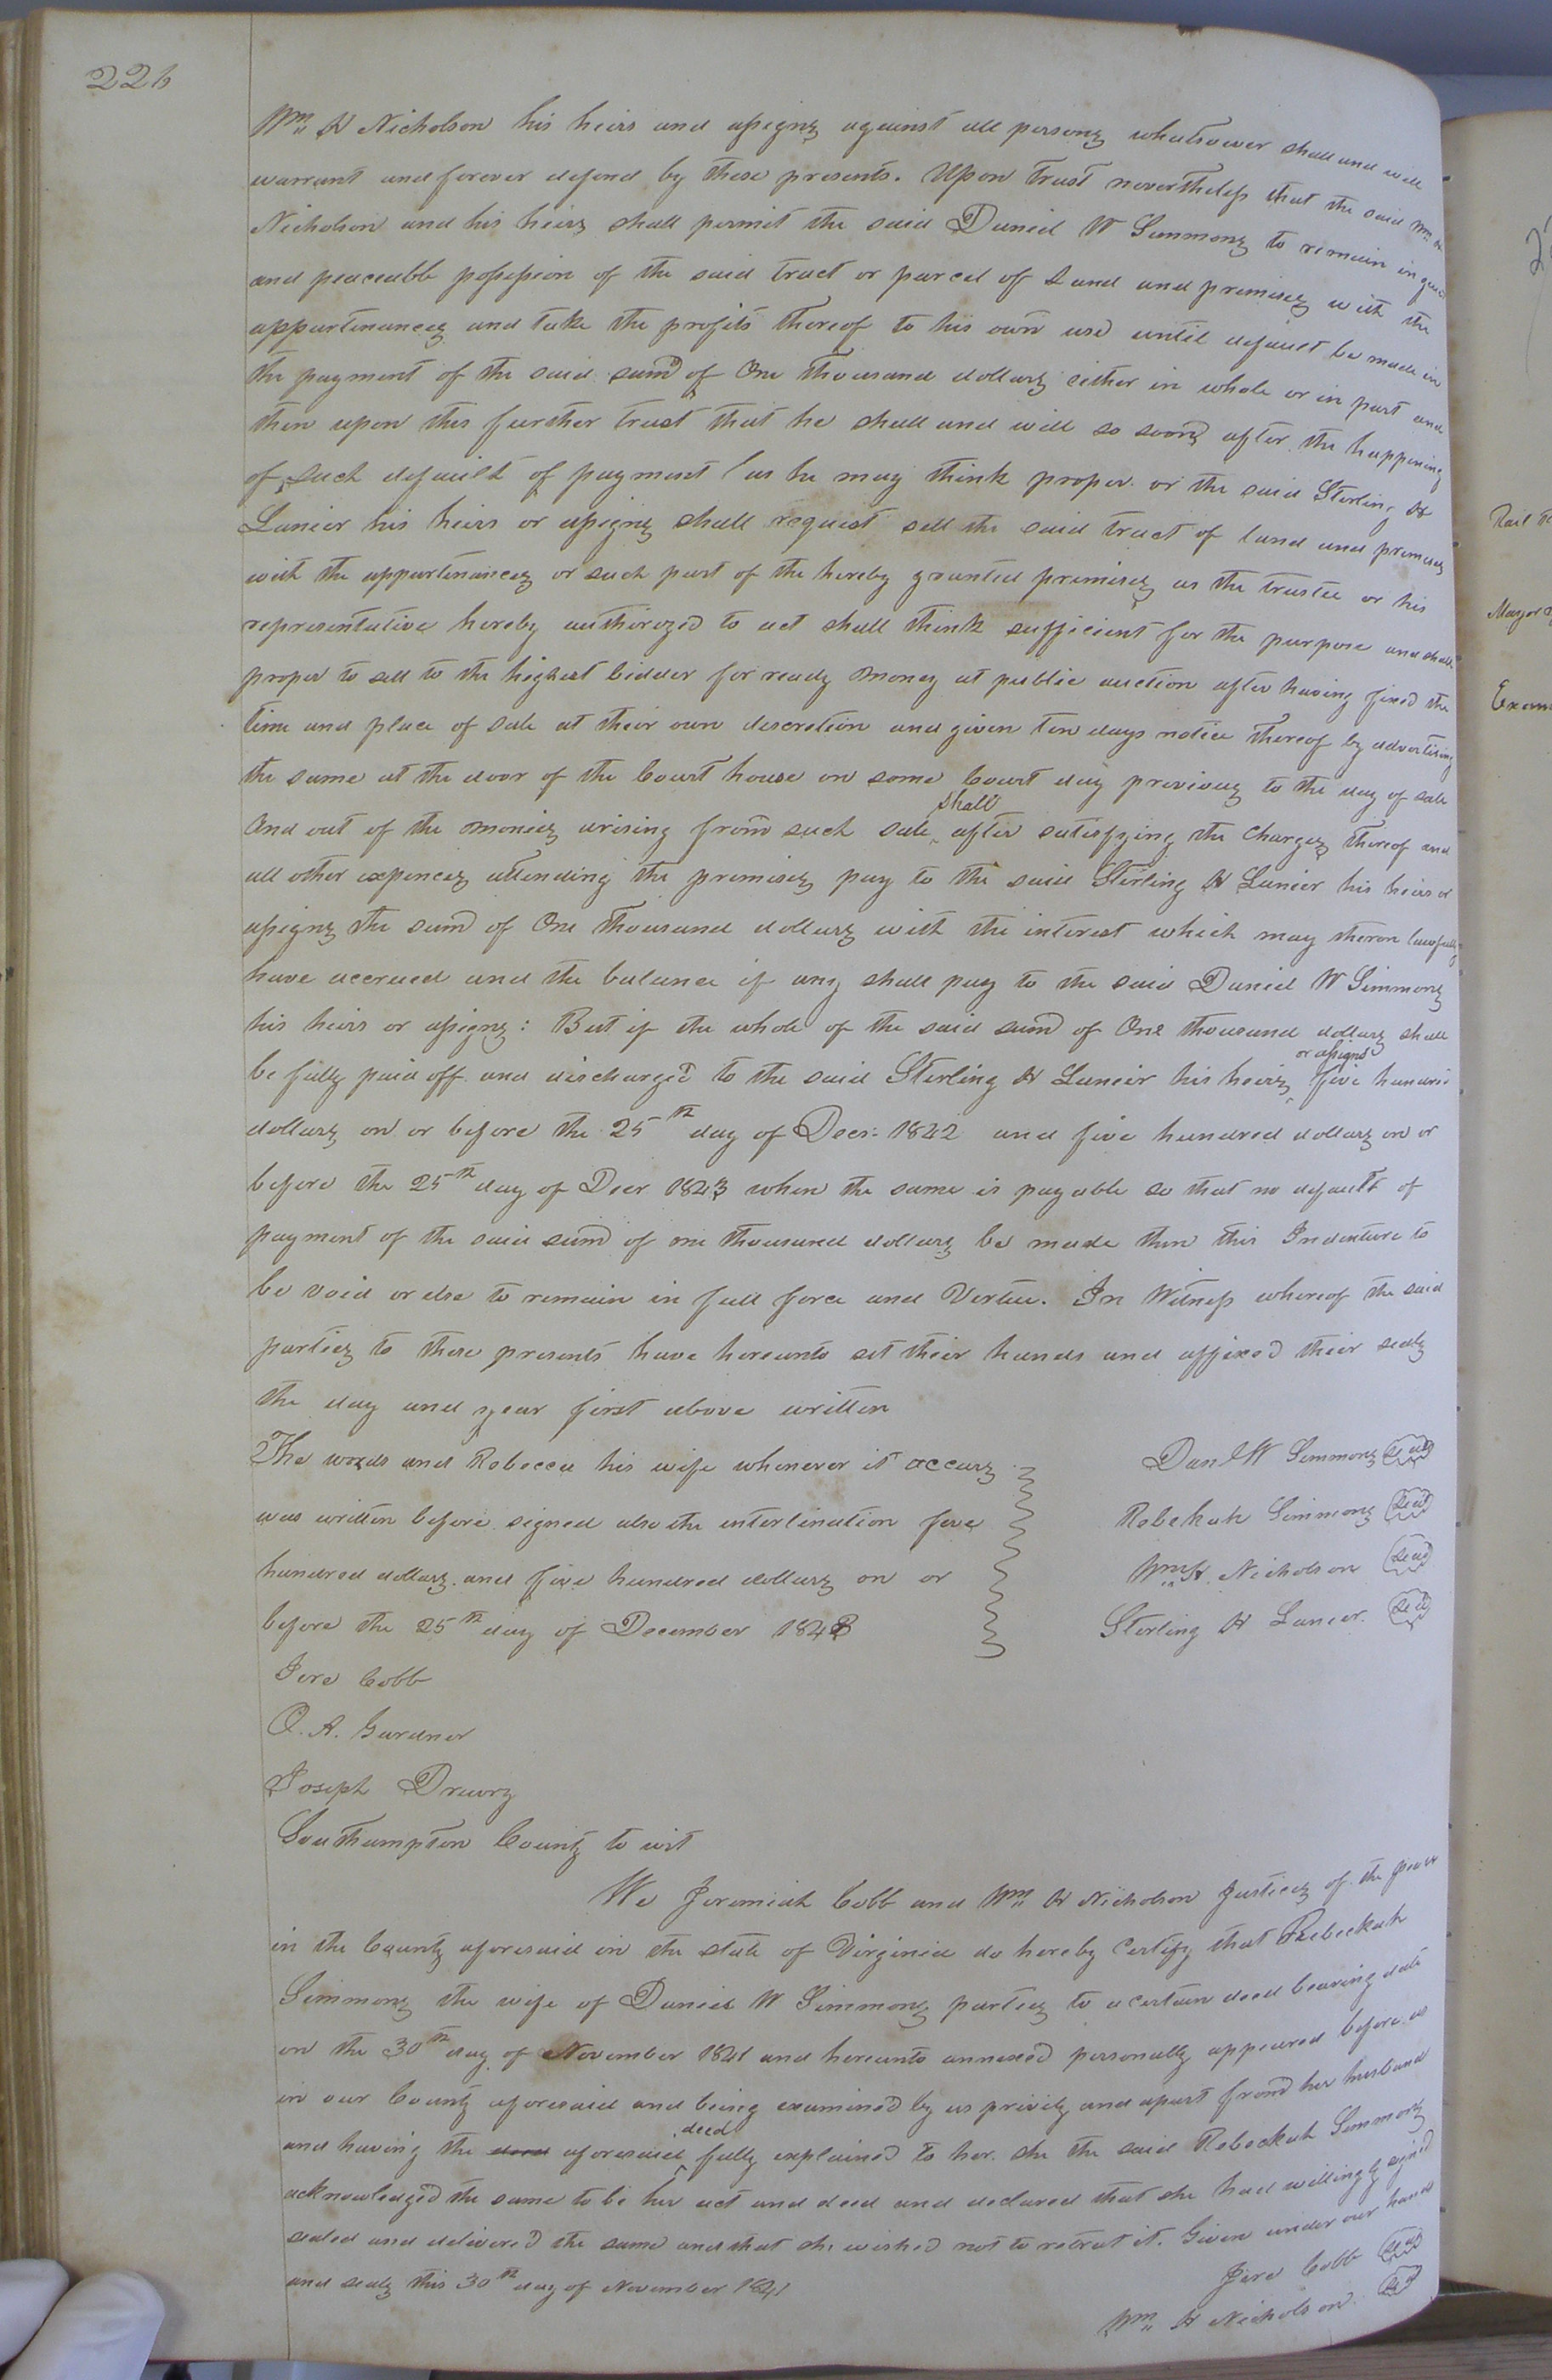 226
Wm H Nicholson his heirs and assigns against all persons whatsoever shall and will
warrant and forever defend by these presents. Upon Trust nevertheless that the said Wm H
Nicholson and his heirs shall permit the said Daniel W Simmons to remain in quiet
and peaceable possession of the said tract or parcel of Land and premises with the
appurtenances and take the profits thereof to his own use until default be made in
the payment of the said sum of One thousand dollars either in whole or in part and
then upon this further trust that he shall and will so soon after the happening
of such default of payment (as he may think proper or the said Sterling H
Lanier his heirs or assigns shall request sell the said tract of land and premises
with the appurtenances or such part of the hereby granted premises as the trustee or his
representative hereby authorized to act shall think sufficient for the purpose and shall
proper to sell to the highest bidder for ready money at public auction after having fixed the
time and place of sale at their own discretion and given ten days notice thereof by advertising
the same at the door of the Court house on some Court day previous to the day of sale
And out of the monies arising from such sale shall after satisfying the Charges thereof and
all other expences attending the premises pay to the said Sterling H Lanier his heirs or
assigns the sum of One thousand dollars with the interest which may theron lawfully
have accrued and the balance if any shall pay to the said Daniel W Simmons
his heirs or assigns: But if the whole of the said sum of One thousand dollars shall
be fully paid off and discharged to the said Sterling H Lanier his heirs or assigns five hundred
dollars on or before the 25th day of Decr: 1842 and five hundred dollars on or
before the 25th day of Decr 1843 when the same is payable so that no default of
payment of the said sum of one thousand dollars be made then this Indenture to
be void or else to remain in full force and Virtue. In Witness whereof the said
parties to these presents have hereunto set their hands and affixed their seals
the day and year first above written
The words and Rebecca his wife whenever it occurs
was written before signed also the interlination five
hundred dollars and five hundred dollars on or
before the 25th day of December 1843
Danl W Simmons Seal
Rebekah Simmons Seal
Wm H. Nicholson Seal
Sterling H Lanier. Seal
Jere Cobb
A. Gardner
Joseph Drewry
Southampton County to wit
We Jeremiah Cobb and Wm H Nicholson Justices of the peace
in the County aforesaid in the state of Virginia do hereby Certify that Rebeckah
Simmons the wife of Daniel W Simmons parties to a certain deed bearing date
on the 30th day of November 1841 and hereunto annexed personally appeared before us
in our County aforesaid and being examined by us privily and apart from her husband
and having the aforesaid deed fully explained to her. she the said Rebeckah Simmons
acknowledged the same to be her act and deed and declared that she had willingly signed
sealed and delivered the same and that she wished not to retract it. Given under our hands
and seals this 30th day of November 1841
Jere Cobb Seal
Wm H Nicholson. Seal